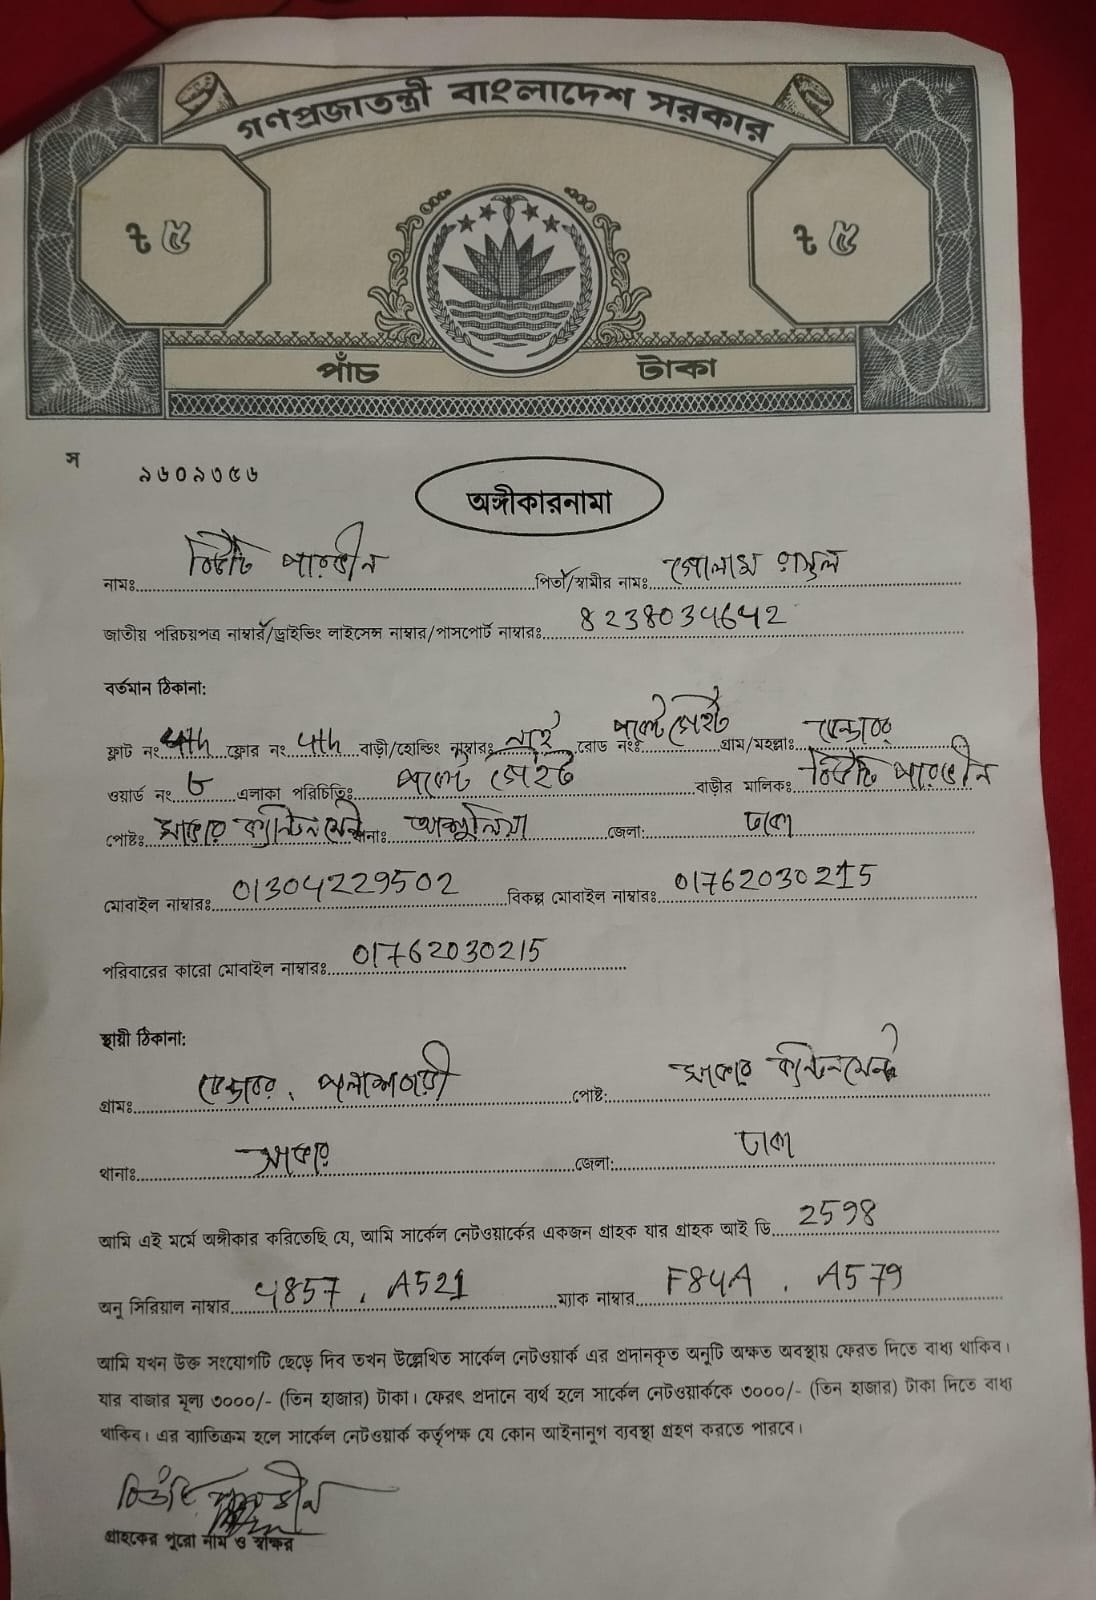 গণপ্রজাতন্ত্রী বাংলাদেশ সরকার
৳ ৫ ৳ ৫
পাঁচ টাকা
স ৯৬০৯৩৫৬
অঙ্গীকারনামা
নামঃ বিউটি পারভীন পিতা/স্বামীর নামঃ গোলাম রসুল
জাতীয় পরিচয়পত্র নাম্বার/ড্রাইভিং লাইসেন্স নাম্বার/পাসপোর্ট নাম্বারঃ 8238034642
বর্তমান ঠিকানা:
ফ্লাট নং 4th ফ্লোর নং 4th বাড়ী/হোল্ডিং নাম্বারঃ নাই রোড নংঃ পকেট গেইট গ্রাম/মহল্লাঃ
ওয়ার্ড নং ৮ এলাকা পরিচিতিঃ পকেট গেইট বাড়ীর মালিকঃ বিউটি পারভীন
পোষ্টঃ সাভার ক্যান্টনমেন্ট থানাঃ আশুলিয়া জেলা: ঢাকা
মোবাইল নাম্বারঃ 01304229502 বিকল্প মোবাইল নাম্বারঃ 01762030215
পরিবারের কারো মোবাইল নাম্বারঃ 01762030215
স্থায়ী ঠিকানা:
গ্রামঃ পলাশবাড়ী পোষ্ট: সাভার ক্যান্টনমেন্ট
থানাঃ সাভার জেলা: ঢাকা
আমি এই মর্মে অঙ্গীকার করিতেছি যে, আমি সার্কেল নেটওয়ার্কের একজন গ্রাহক যার গ্রাহক আই ডি 2598
অনু সিরিয়াল নাম্বার 4857, A521 ম্যাক নাম্বার F84A, A579
আমি যখন উক্ত সংযোগটি ছেড়ে দিব তখন উল্লেখিত সার্কেল নেটওয়ার্ক এর প্রদানকৃত অনুটি অক্ষত অবস্থায় ফেরত দিতে বাধ্য থাকিব।
যার বাজার মূল্য ৩০০০/- (তিন হাজার) টাকা। ফেরৎ প্রদানে ব্যর্থ হলে সার্কেল নেটওয়ার্ককে ৩০০০/- (তিন হাজার) টাকা দিতে বাধ্য
থাকিব। এর ব্যাতিক্রম হলে সার্কেল নেটওয়ার্ক কর্তৃপক্ষ যে কোন আইনানুগ ব্যবস্থা গ্রহণ করতে পারবে।
বিউটি পারভীন
গ্রাহকের পুরো নাম ও স্বাক্ষর